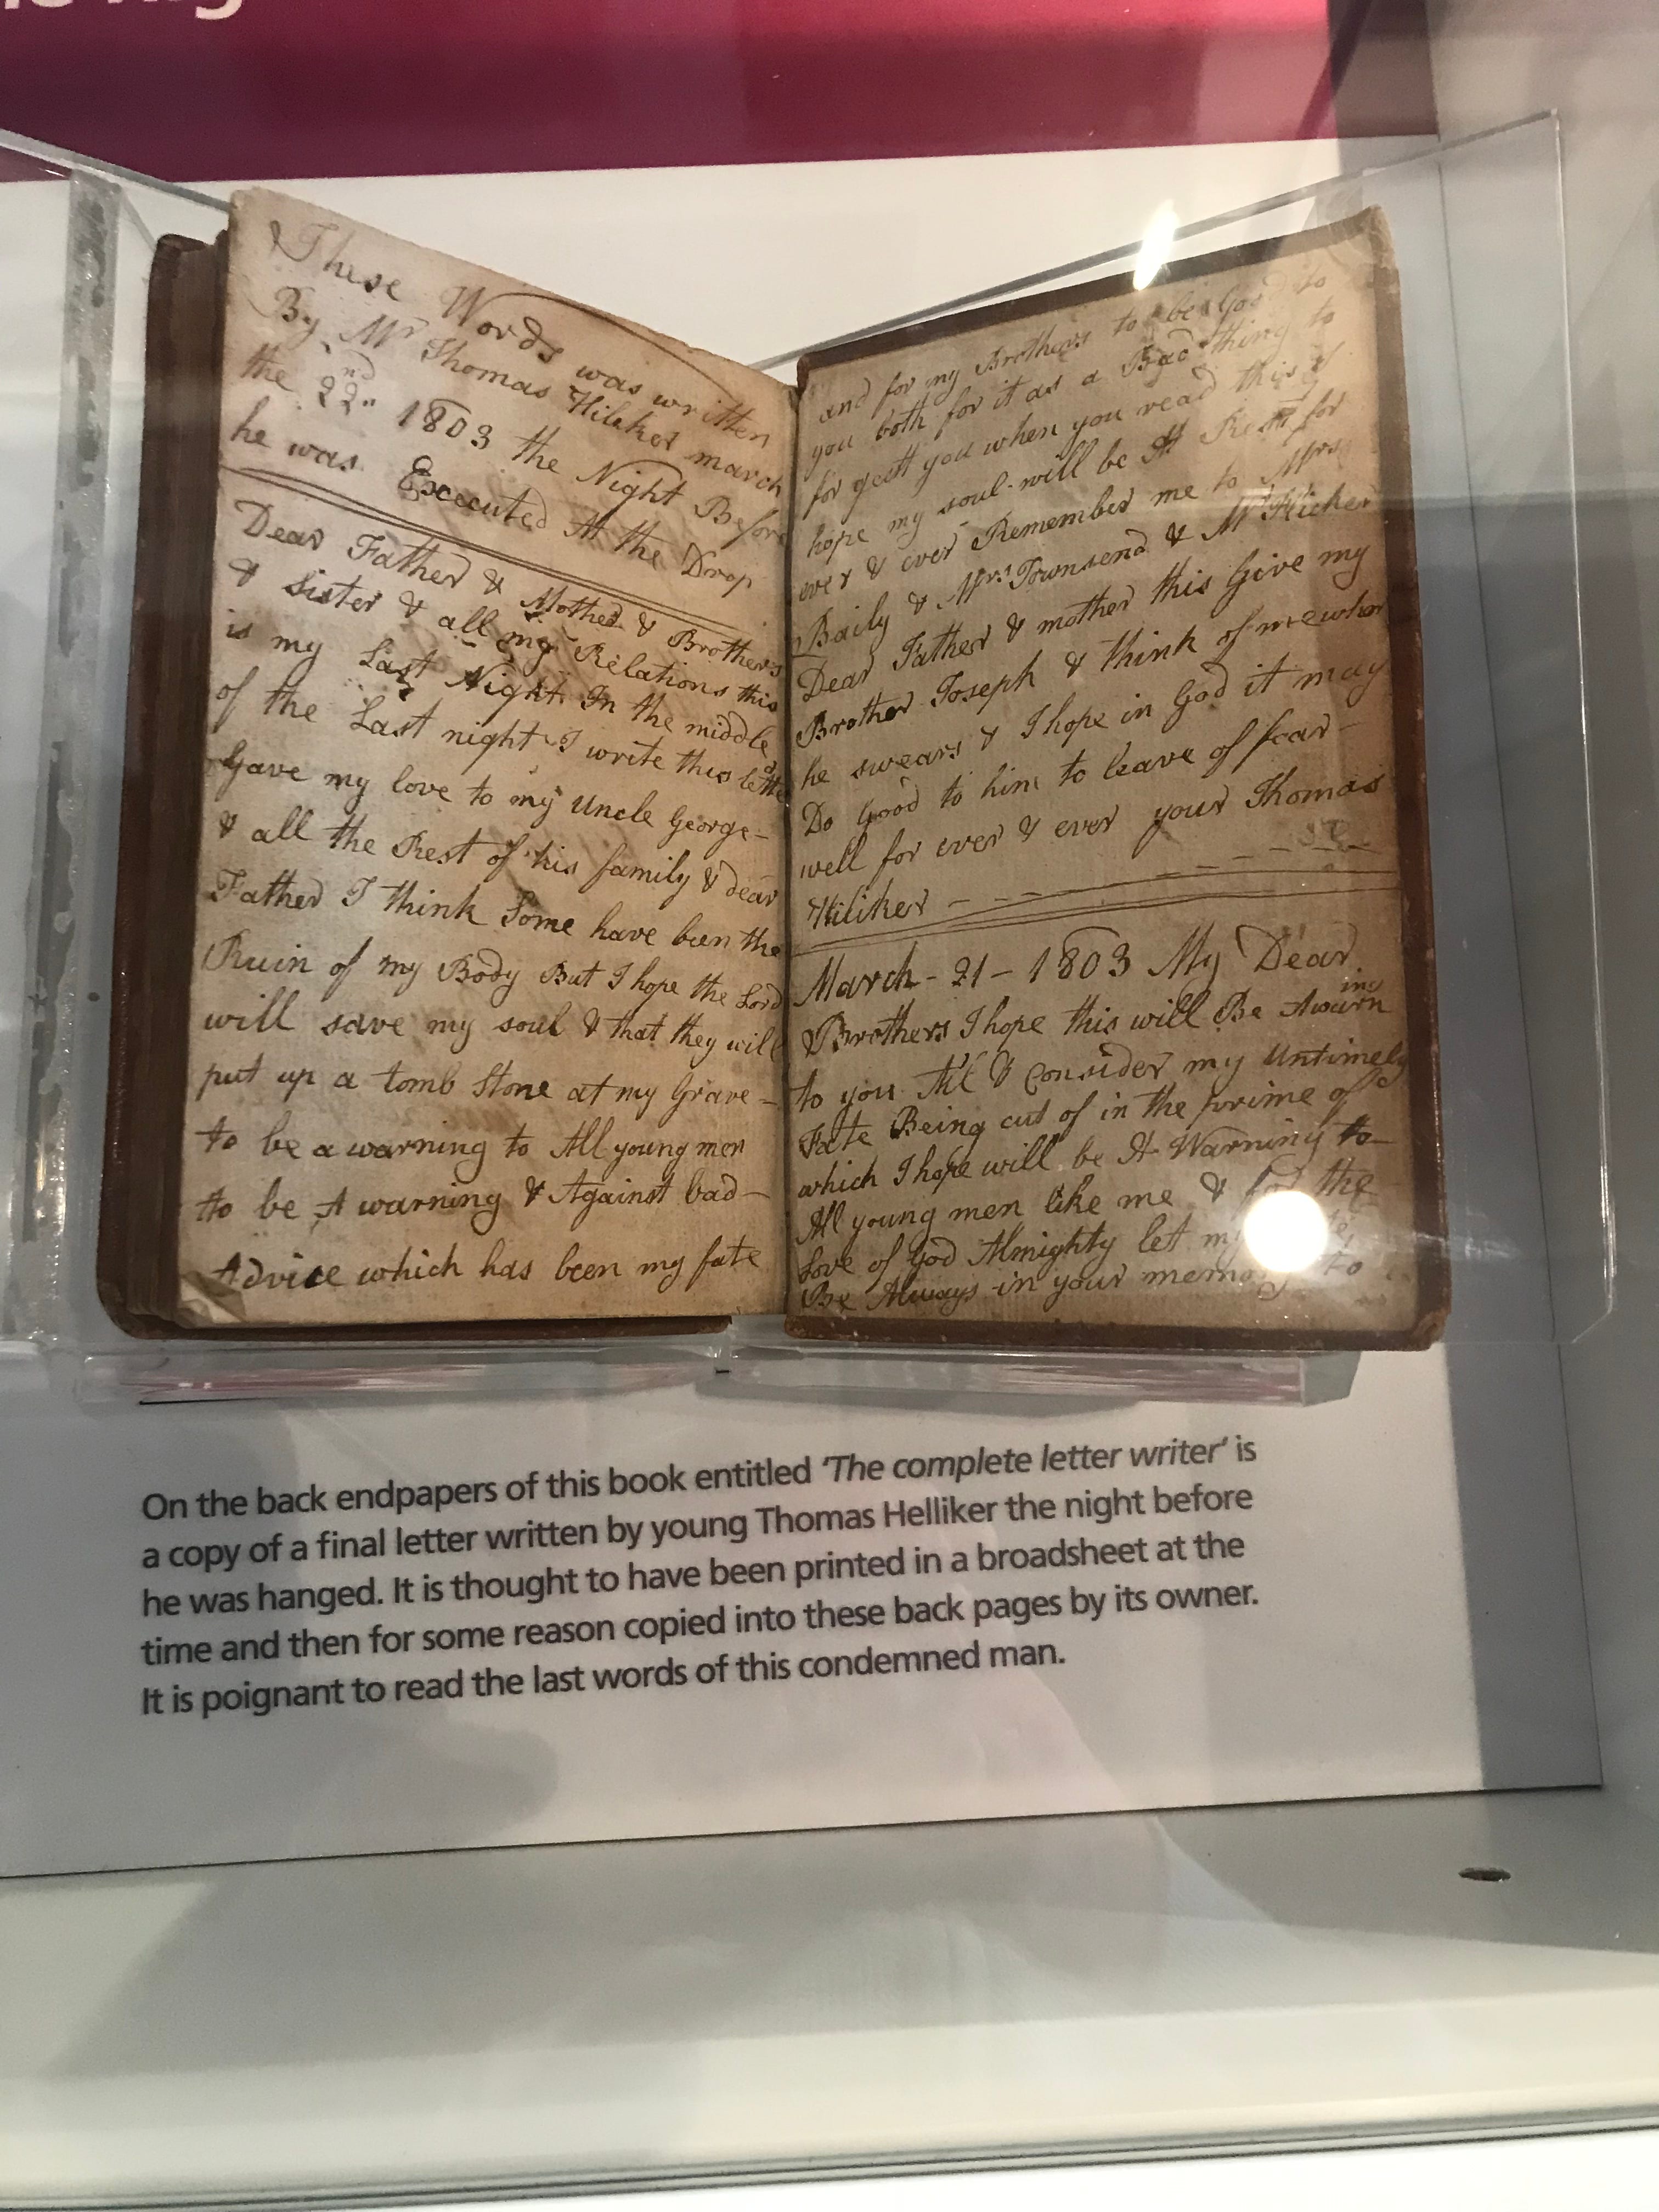 These Words was written
By Mr Thomas Hiliker march
the 22nd 1803 the Night Before
he was Excecuted At the Drop
Dear Father & Mother & Brothers
& Sister & all my Relations this
is my Last Night In the middle
of the Last night I write this letter
Gave my love to my Uncle George
& all the Rest of his family & dear
Father I think Some have been the
Ruin of my Body But I hope the Lord
will save my soul & that they will
put up a tomb Stone at my Grave
to be a warning to All young men
to be A warning & Against bad
Advice which has been my fate
and for my Brothers to be Good to
you both for it as a Bad thing to
for gett you when you read this I
hope my soul will be At Rest for
ever & ever Remember me to Mrs
Baily & Mrs Townsend & Mr
Dear Father & mother this Give my
Brother Joseph & think of me when
he swears & I hope in God it may
Do Good to him to leave of fear
well for ever & ever your Thomas
Hiliker
March - 21 - 1803 My Dear
Brothers I hope this will Be A
to you All & Consider my Untimely
Fate Being cut of in the prime of
which I hope will be A Warning to
All young men like me & for the
Love of God Almighty let my
Be Always in your memory to
On the back endpapers of this book entitled 'The complete letter writer' is
a copy of a final letter written by young Thomas Helliker the night before
he was hanged. It is thought to have been printed in a broadsheet at the
time and then for some reason copied into these back pages by its owner.
It is poignant to read the last words of this condemned man.